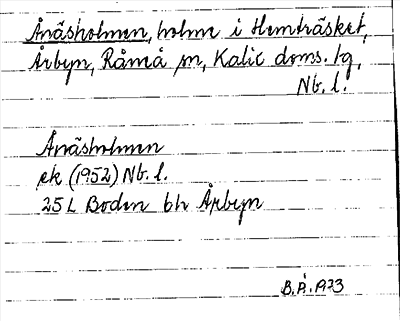 Ånäsholmen, holme i Hemträsket,
Årbyn, Råneå sn, Kalix doms. tg,
Nb. l.
Ånäsholmen
ek (1952) Nb. l.
25 L Boden bh Årbyn
B.P. 1973